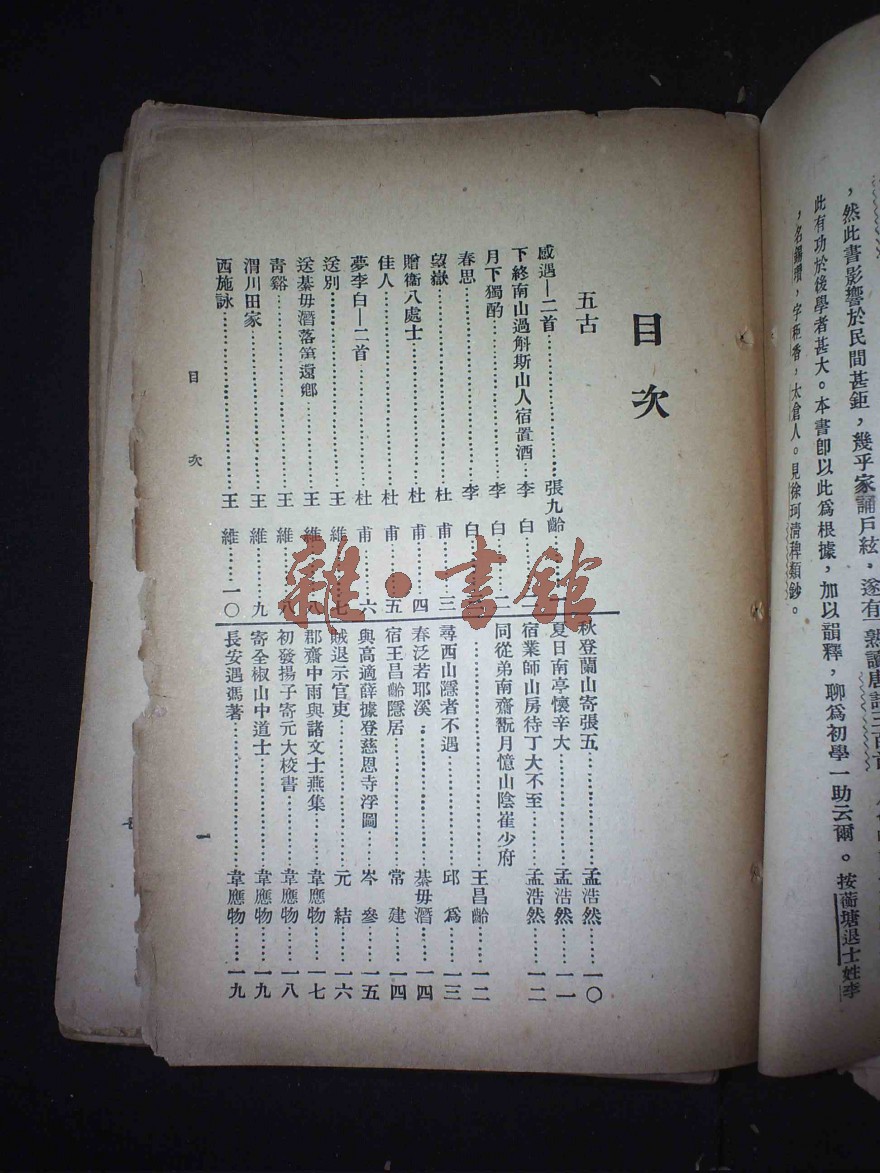 ，然此書影響於民間甚鉅，幾乎家誦戶絃，遂有「熟讀唐詩三百首
此有功於後學者甚大。本書卽以此爲根據，加以韻釋，聊爲初學一助云爾。按蘅塘退士姓李
，名錫瓚，字秬香，太倉人。見徐珂淸稗類鈔。
目次
五古
感遇—二首……張九齡……
下終南山過斛斯山人宿置酒…李白……二
月下獨酌……李白……二
春思……李白……三
望嶽……杜甫……三
贈衞八處士……杜甫……四
佳人……杜甫……五
夢李白—二首……杜甫……六
送別……王維……七
送綦毋潛落第還鄕……王維……八
靑谿……王維……八
渭川田家……王維……九
西施詠……王維……一〇
秋登蘭山寄張五……孟浩然……一〇
夏日南亭懷辛大……孟浩然……一一
宿業師山房待丁大不至……孟浩然……一二
同從弟南齋翫月憶山陰崔少府
……王昌齡……一二
尋西山隱者不遇……邱爲……一三
春泛若耶溪……綦毋潛……一四
宿王昌齡隱居……常建……一四
與高適薛據登慈恩寺浮圖……岑參……一五
賊退示官吏……元結……一六
郡齋中雨與諸文士燕集……韋應物……一七
初發揚子寄元大校書……韋應物……一八
寄全椒山中道士……韋應物……一九
長安遇馮著……韋應物……一九
目次
一
雜·書館